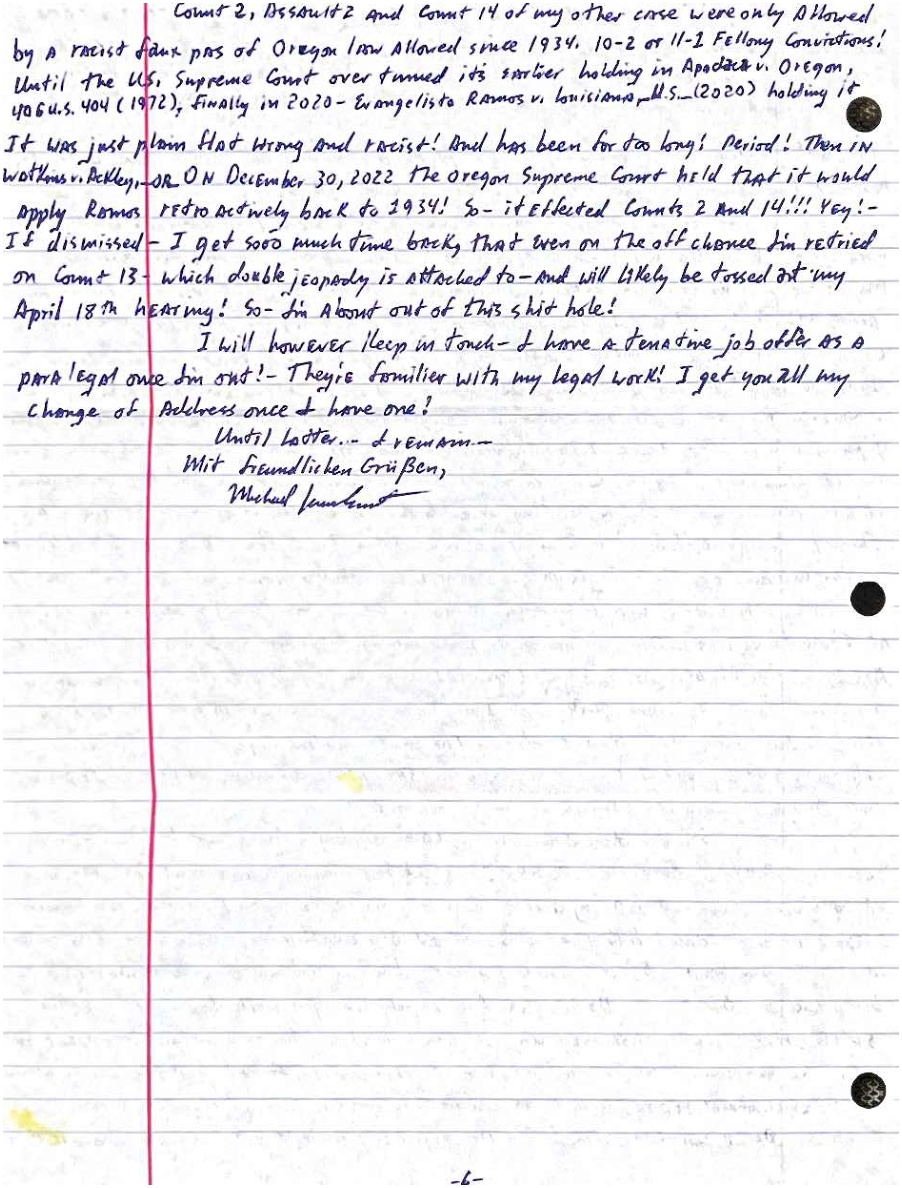 Count 2, Assault 2 and Count 14 of my other case were only Allowed
by A racist faux pas of Oregon law Allowed since 1934. 10-2 or 11-1 Fellony Convictions!
Until the U.S. Supreme Court over turned its earlier holding in Apodaca v. Oregon,
406 U.S. 404 (1972), finally in 2020 - Evangelisto Ramos v. Louisiana, _U.S._ (2020) holding it
It was just plain flat wrong and racist! And has been for too long! Period! Then IN
Watkins v. Ackley, _OR_ ON December 30, 2022 the Oregon Supreme Court held that it would
apply Ramos retroactively back to 1934! So - it Effected Counts 2 and 14!!! Yey! -
If dismissed - I get sooo much time back, that even on the off chance I'm retried
on Count 13 - which double jeopardy is attached to - And will likely be tossed at my
April 18th hearing! So - I'm About out of this shit hole!
I will however keep in touch - I have a tenative job offer as a
paralegal once I'm out! - They're familier with my legal work! I get you all my
Change of Address once I have one!
Until Latter... I remain -
Mit freundlichen Grüßen,
Michael
-6-